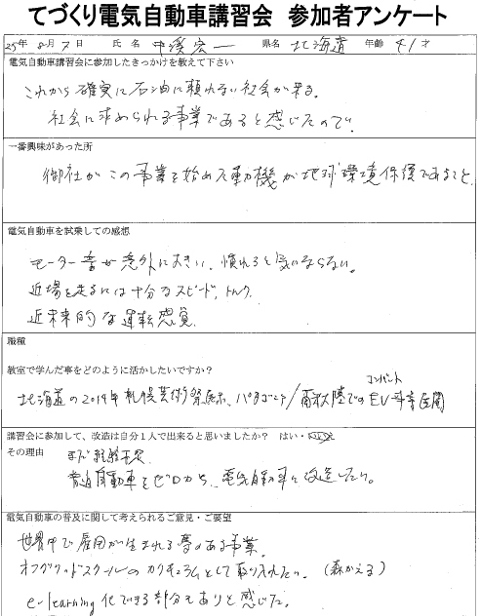 てづくり電気自動車講習会 参加者アンケート
25年 8月 7日 氏 名 中溪宏一 県名 北海道 年齢 41才
電気自動車講習会に参加したきっかけを教えて下さい
これから確実に石油に頼れない社会が来る。
社会に求められる事業であると感じたので。
一番興味があった所
御社がこの事業を始めた動機が地球環境保護であること
電気自動車を試乗しての感想
モーター音が意外に大きい、慣れると気にならない。
近場を走るには十分なスピード、トルク。
近未来的な運転感覚
職種
教室で学んだ事をどのように活かしたいですか?
コンバート
北海道の2014年札幌芸術祭 パタゴニア/南米大陸でのEV
講習会に参加して、改造は自分1人で出来ると思いましたか? はい・いいえ
その理由 まだ経験不足
普通自動車をゼロから、電気自動車に改造したい。
電気自動車の普及に関して考えられるご意見・ご要望
世界中で雇用が生まれる夢のある事業。
オフグリッドスクールのカリキュラムとして取り入れたい。(森かえる)
e-learning化できる部分もありと感じた。